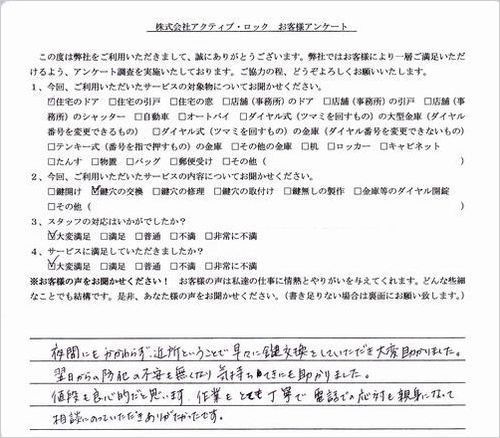 株式会社アクティブ・ロック お客様アンケート
この度は弊社をご利用いただきまして、誠にありがとうございます。弊社ではお客様により一層ご満足いただ
けるよう、アンケート調査を実施いたしております。ご協力の程、どうぞよろしくお願いいたします。
1、今回、ご利用いただいたサービスの対象物についてお聞かせください。
☑住宅のドア □住宅の引戸 □住宅の窓 □店舗(事務所)のドア □店舗(事務所)の引戸 □店舗(事
務所)のシャッター □自動車 □オートバイ □ダイヤル式(ツマミを回すもの)の大型金庫(ダイヤル
番号を変更できるもの) □ダイヤル式(ツマミを回すもの)の金庫(ダイヤル番号を変更できないもの)
□テンキー式(番号を指で押すもの)の金庫 □その他の金庫 □机 □ロッカー □キャビネット
□たんす □物置 □バッグ □郵便受け □その他( )
2、今回、ご利用いただいたサービスの内容についてお聞かせください。
□鍵開け ☑鍵穴の交換 □鍵穴の修理 □鍵穴の取付け □鍵無しの製作 □金庫等のダイヤル開錠
□その他( )
3、スタッフの対応はいかがでしたか?
☑大変満足 □満足 □普通 □不満 □非常に不満
4、サービスに満足していただきましたか?
☑大変満足 □満足 □普通 □不満 □非常に不満
※お客様の声をお聞かせください! お客様の声は私達の仕事に情熱とやりがいを与えてくれます。どんな些細
なことでも結構です。是非、あなた様の声をお聞かせください。(書き足りない場合は裏面にお願い致します。)
夜間にもかかわらず、近所ということで早々に鍵交換をしていただき大変助かりました。
翌日からの防犯の不安も無くなり気持ち的にも助かりました。
値段も良心的だと思います。作業もとても丁寧で電話での応対も親身になって
相談にのっていただきありがたかったです。